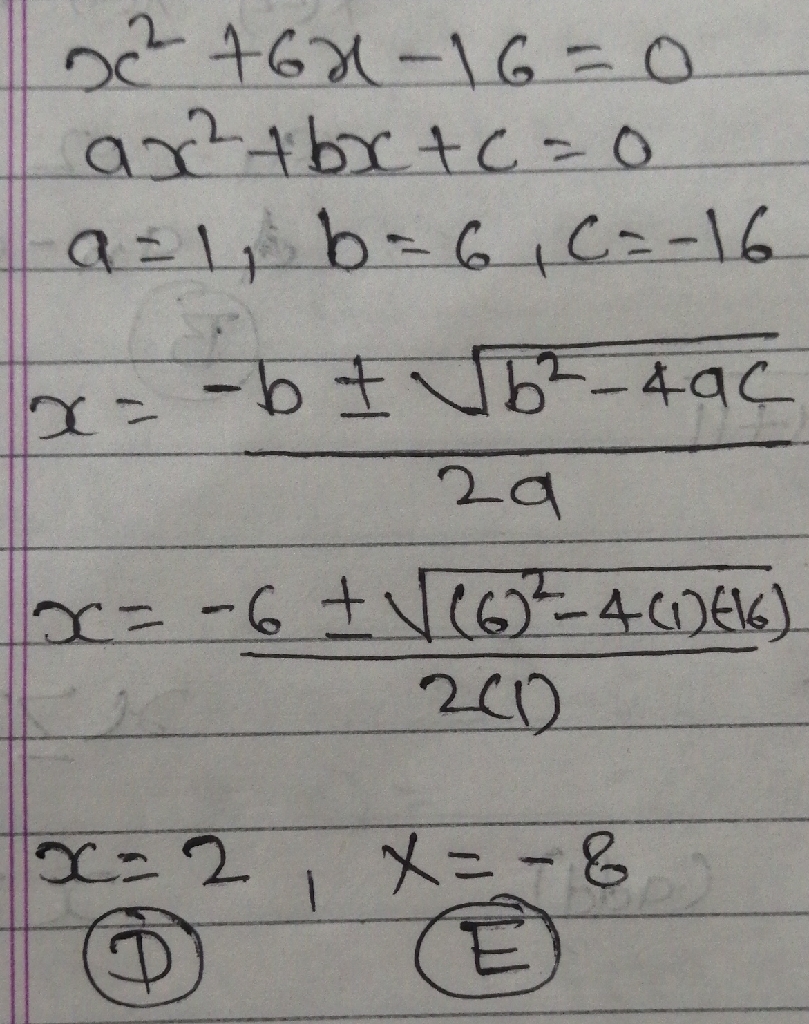 x² + 6x - 16 = 0
ax² + bx + c = 0
a = 1, b = 6, c = -16
x = -b ± √b² - 4ac
2a
x = -6 ± √(6)² - 4(1)(-16)
2(1)
x = 2, x = -8
D E